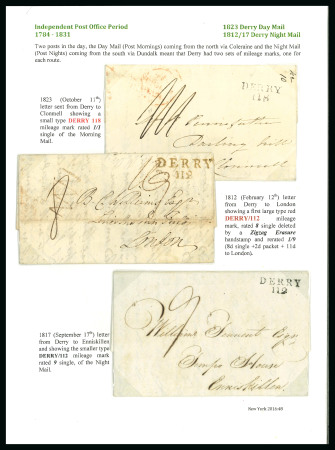 Independent Post Office Period
1784 - 1831
1823 Derry Day Mail
1812/17 Derry Night Mail
Two posts in the day, the Day Mail (Post Mornings) coming from the north via Coleraine and the Night Mail
(Post Nights) coming from the south via Dundalk meant that Derry had two sets of mileage marks, one for
each route.
1823 (October 11th)
letter sent from Derry to
Clonmell showing a
small type DERRY 118
mileage mark rated 1/1
single of the Morning
Mail.
DERRY
118
Clonmell
DERRY
112
London
1812 (February 12th) letter
from Derry to London
showing a first large type red
DERRY/112 mileage
mark, rated 8 single deleted
by a Zigzag Erasure
handstamp and rerated 1/9
(8d single +2d packet + 11d
to London).
1817 (September 17th) letter
from Derry to Enniskillen
and showing the smaller type
DERRY/112 mileage mark
rated 9 single, of the Night
Mail.
DERRY
112
9
Enniskillen
New York 2016:40